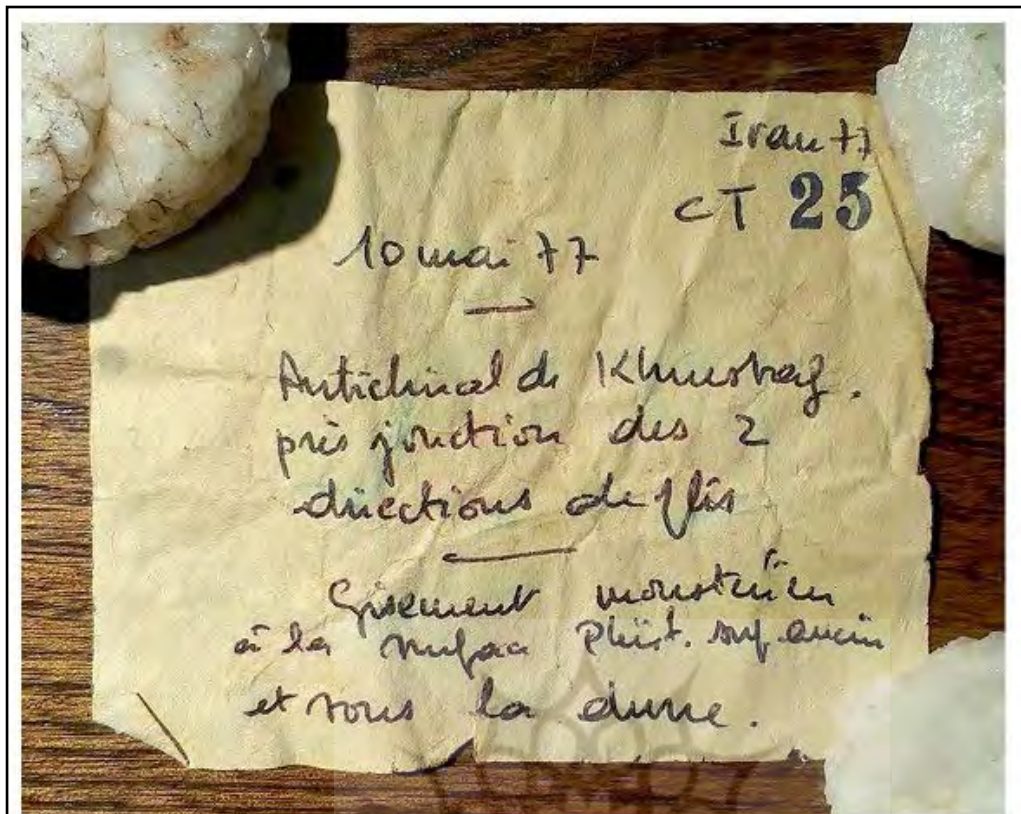 Iran 77
CT 25
10 mai 77
Anticlinal de
près jonction des 2
directions de plis
Gisement moustérien
à la surface Pleist. sup. ancien
et sous la dune.